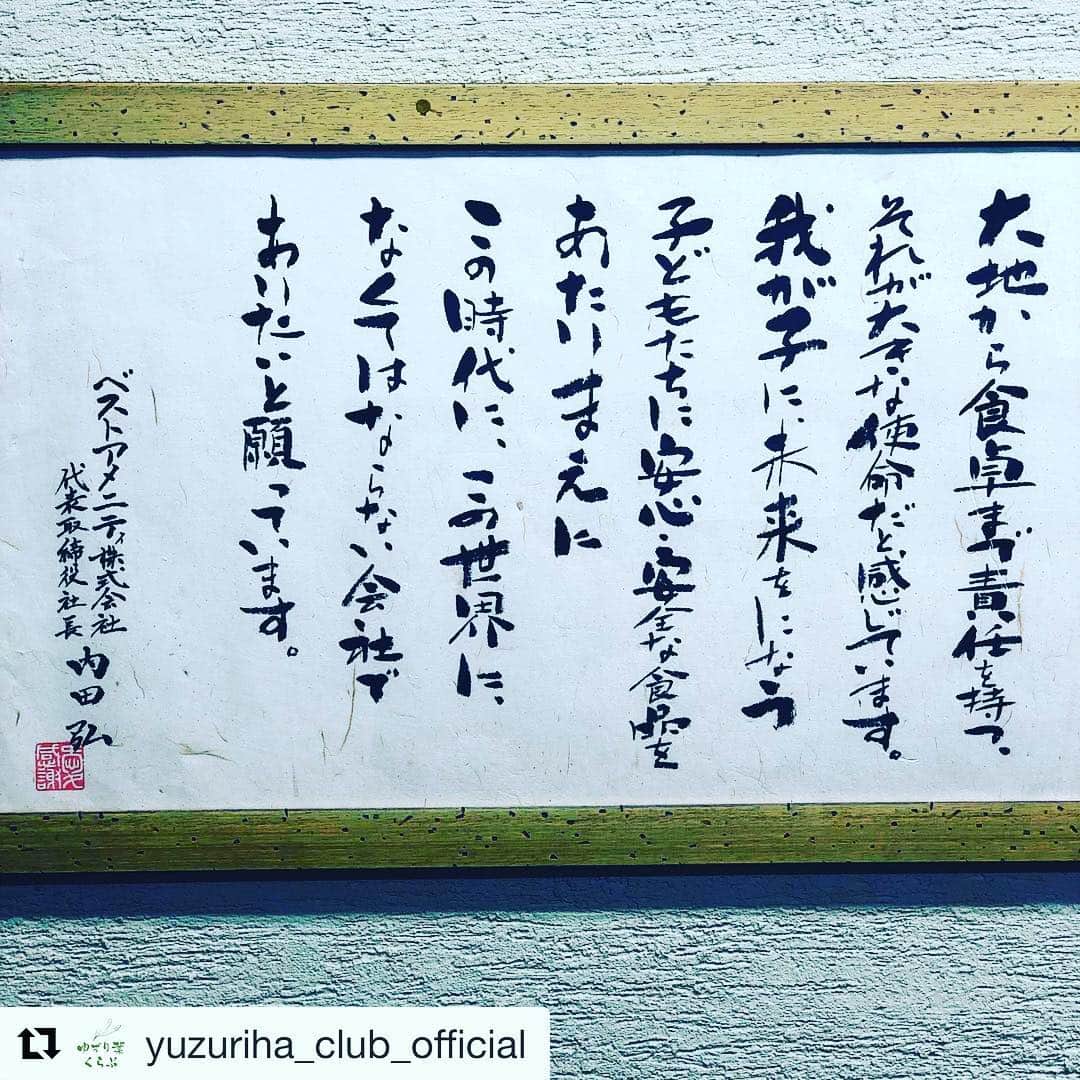 大地から食卓まで責任を持つ、
それが大きな使命だと感じています。
我が子に、未来をになう
子どもたちに安心・安全な食品を
あたりまえに
この時代に、この世界に、
なくてはならない会社で
ありたいと願っています。
ベストアメニティ株式会社
代表取締役社長 内田 弘
感謝
ゆずり葉
くらぶ
yuzuriha_club_official